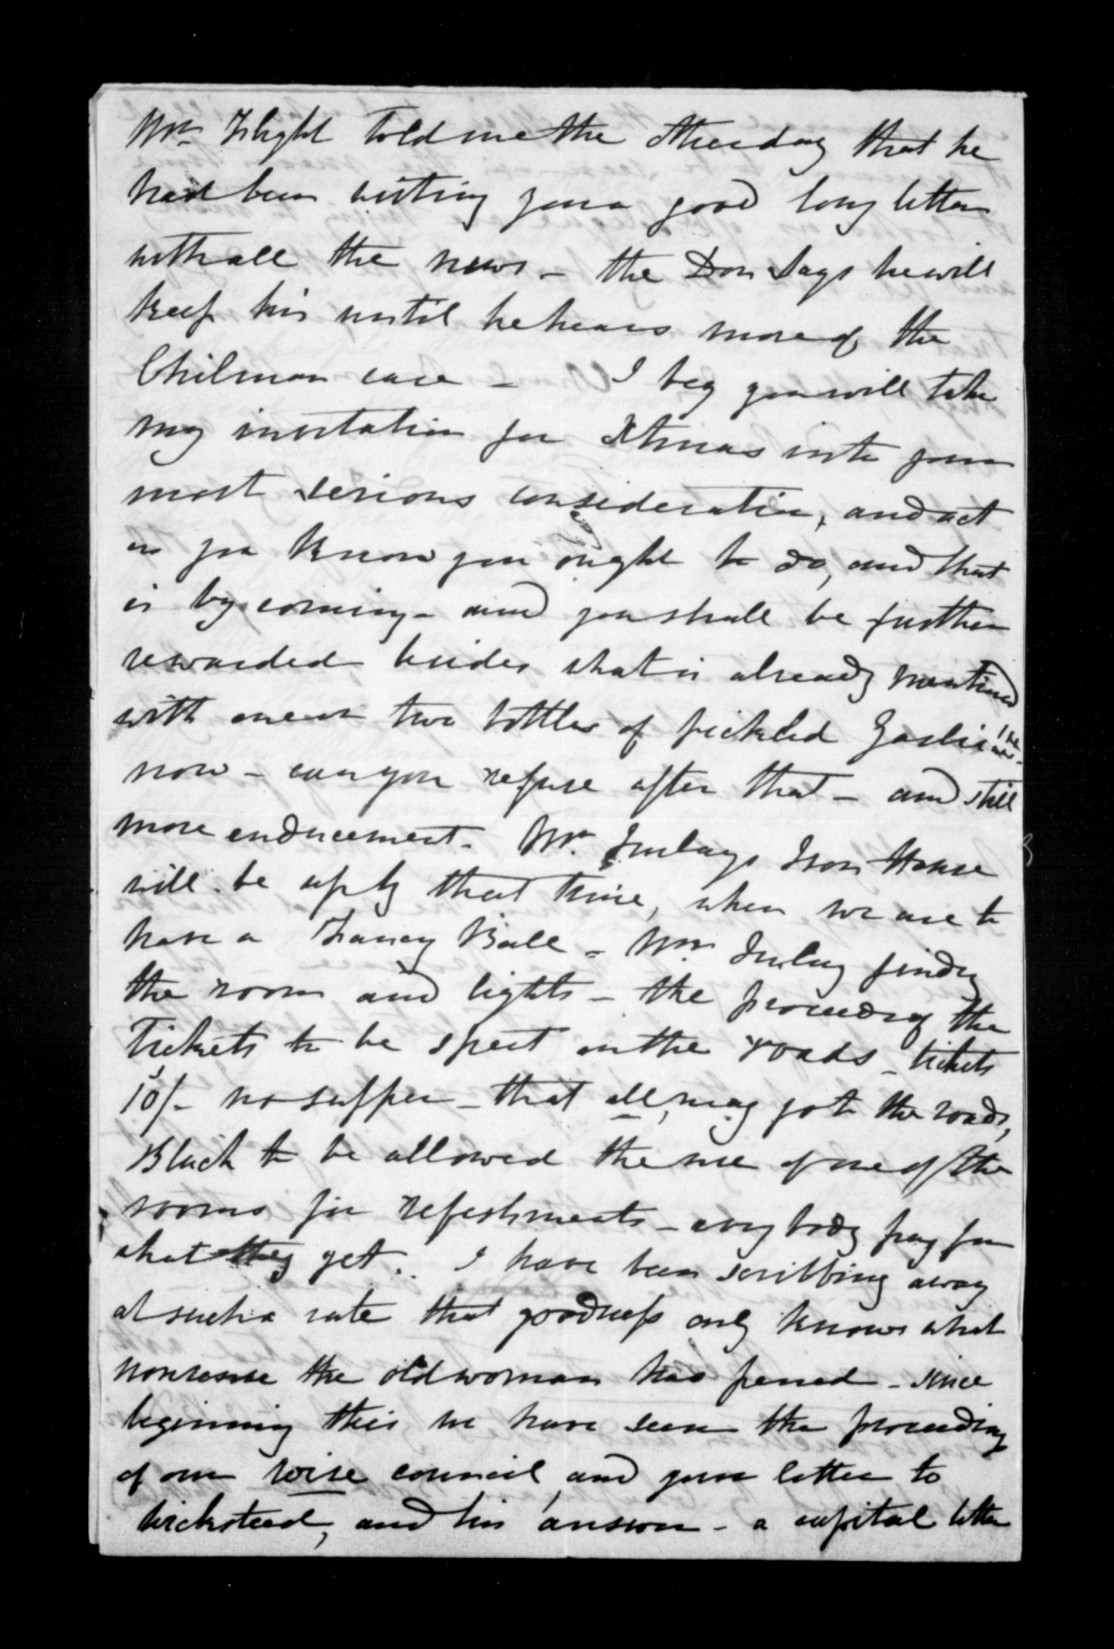 Mr. Flight told me the otherday that he
had been writing you a good long letter
with all the news - the Don says he will
keep his until he hears more of the
Chilman case - I beg you will take
my invitation for Xtmas into your
most serious consideration, and act
as you know you ought to do, and that
is by coming - and you shall be further
rewarded besides what is already mentioned
with one or two bottles of pickled Garlic
now - can you refuse after that - and still
more enducement. Mr. Imlays Iron House
will be up by that time, when we are to
have a Fancy Ball - Mr Imlay finds
the room and lights - the proceeds of the
Tickets to be spent on the roads - tickets
10/- no supper - that all, may go to the roads,
Black to be allowed the use of one of the
rooms for refeshments - every body pay for
what they get. I have been scribbing away
at such a rate that goodness only knows what
nonsense the old woman has penned - since
beginning this we have seen the proceeding
of our wise council, and your letter to
Wicksteed, and his answer - a capital letter